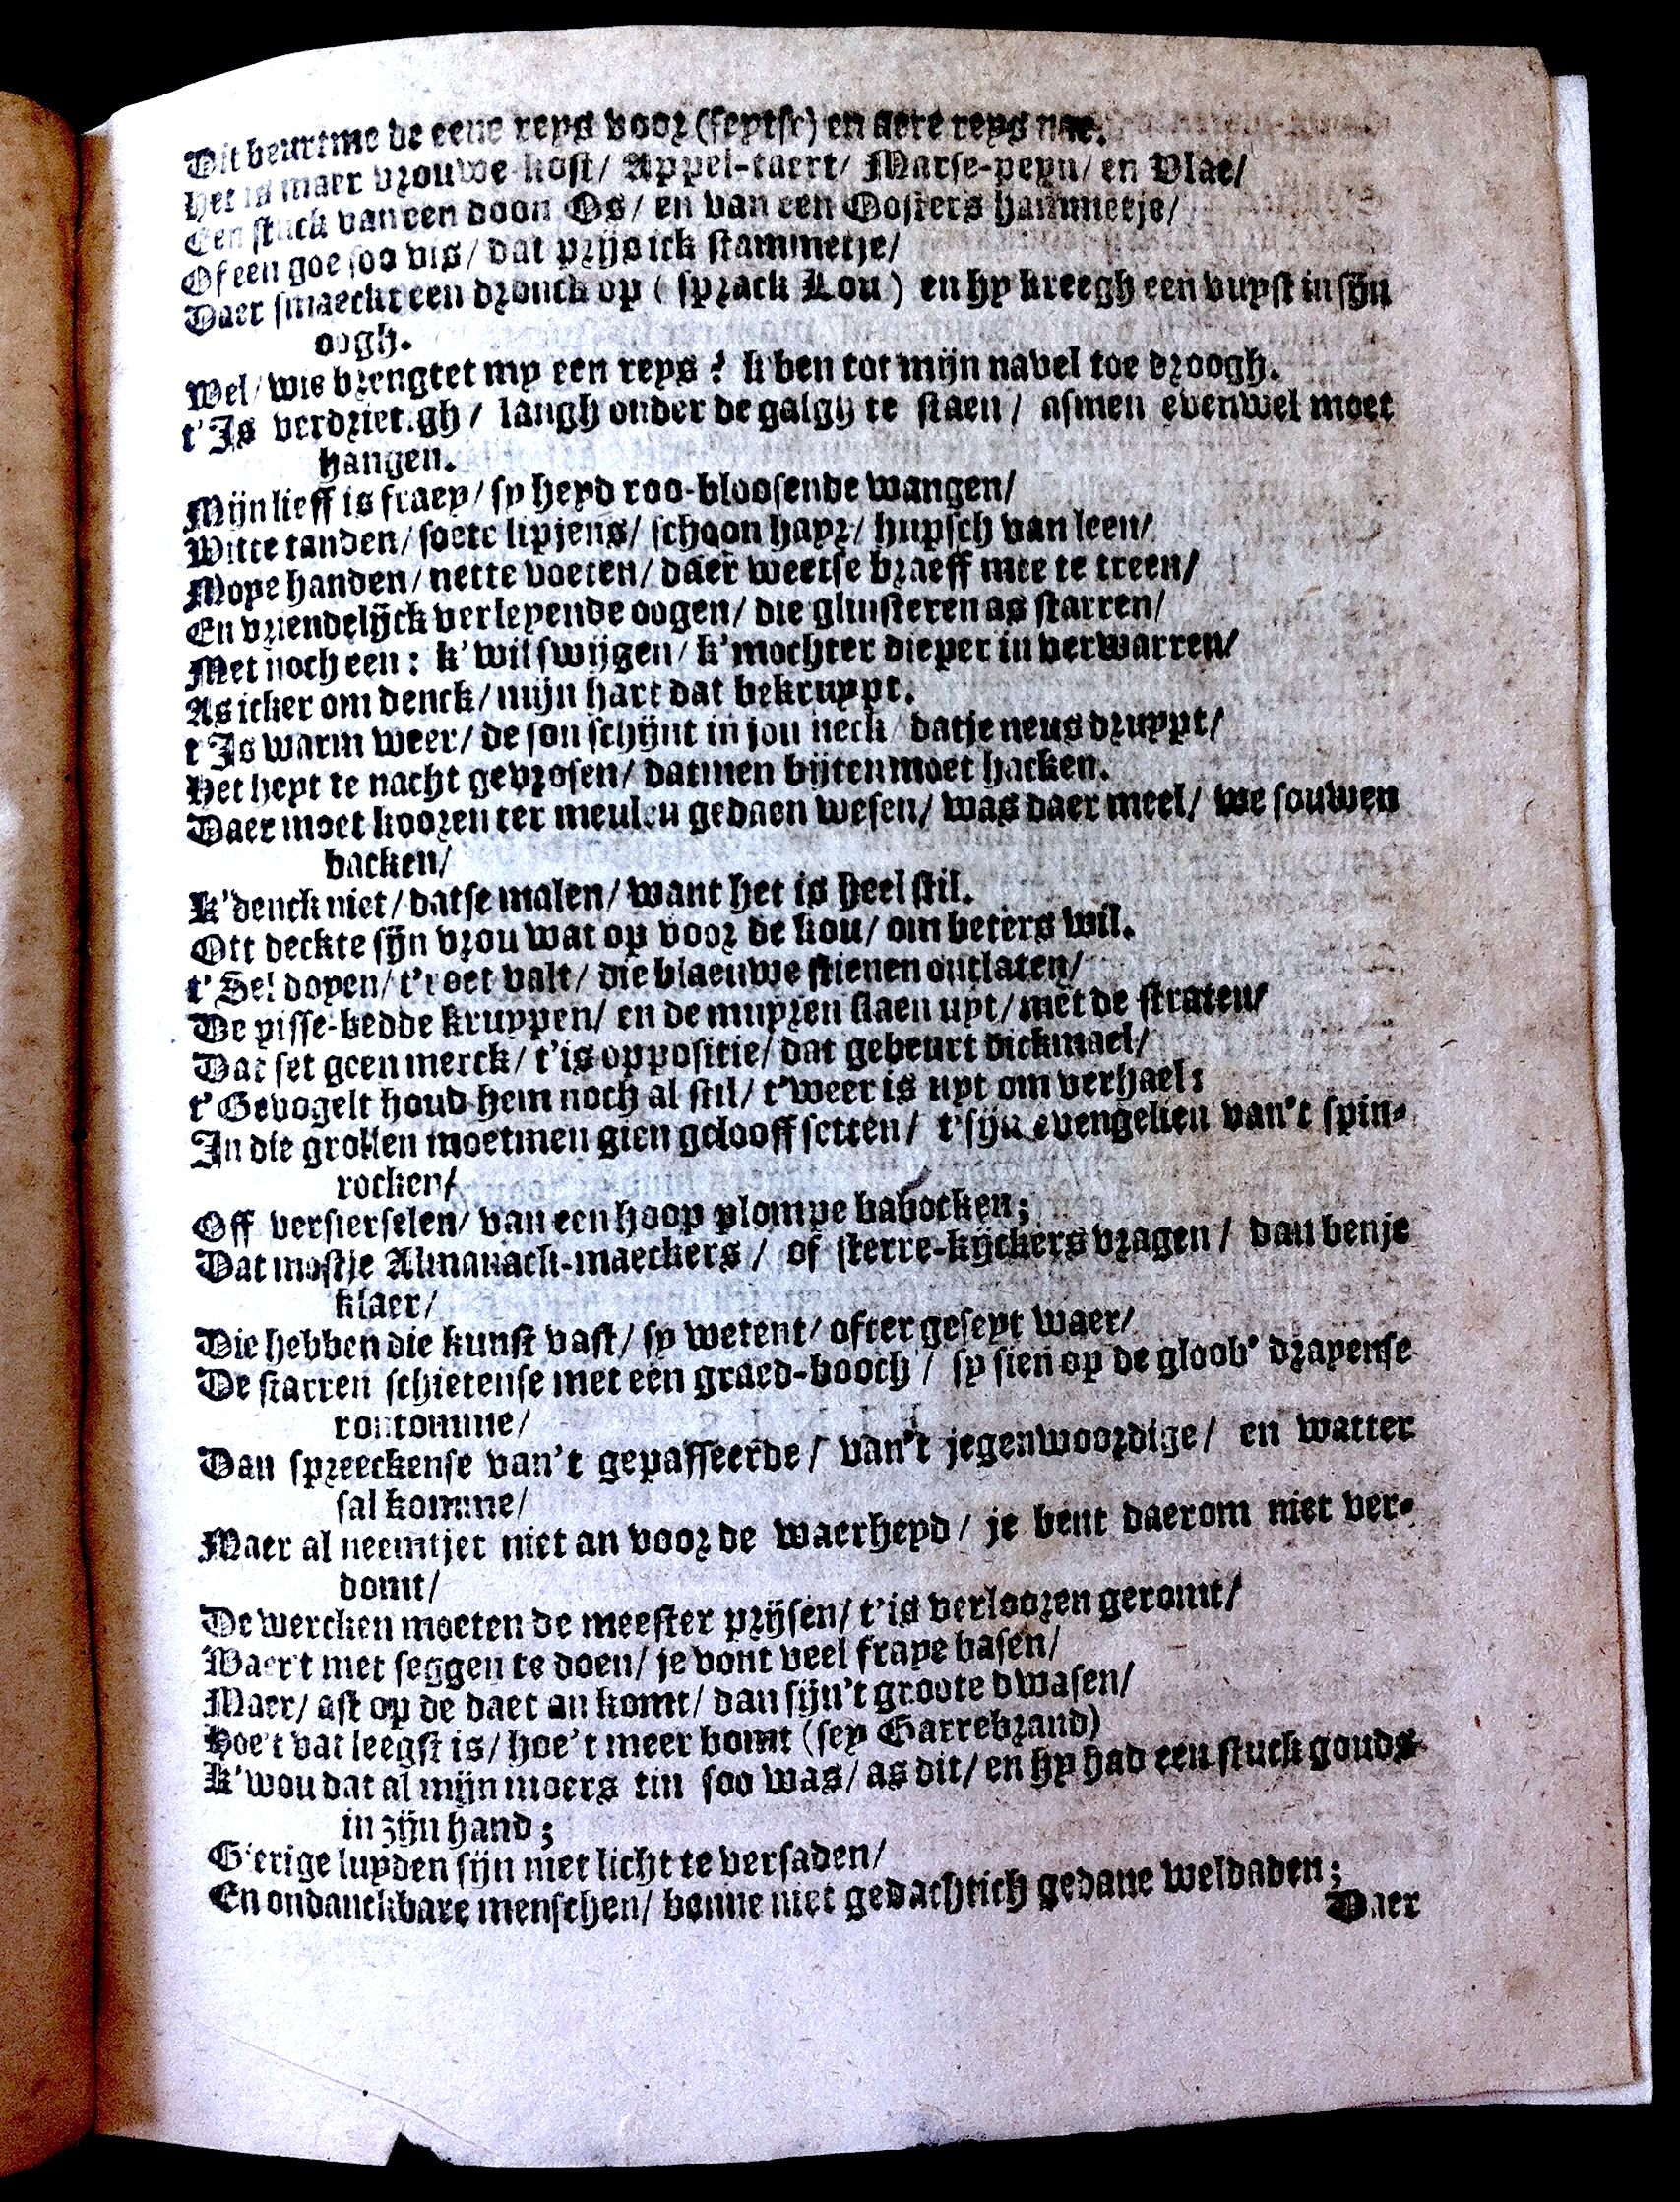 Dit beurtme de eene reys voor (seytse) en aere reys nae.
Het is maer vrouwe-kost/ Appel-taert/ Marse-peyn/ en Vlae/
Een stuck van een doon Os/ en van een Oosters hammetje/
Of een goe soo vis/ dat prijs ick stammetje/
Daer smaeckt een dronck op (sprack Lou) en hy kreegh een vuyst in sijn
oogh.
Wel/ wie brengtet my een reys? k'ben tot mijn navel toe droogh.
t'Is verdriet.gh/ langh onder de galgh te staen/ asmen evenwel moet
hangen.
Mijn lieff is fraey/ sy heyd roo-bloosende wangen/
Witte tanden/ soete lipjens/ schoon hayr/ hupsch van leen/
Moye handen/ nette voeten/ daer weetse braeff mee te treen/
En vriendelijck verleyende oogen/ die glinsteren as starren/
Met noch een: k'wil swijgen/ k'mochter dieper in verwarren/
As icker om denck/ mijn hart dat bekruypt.
t'Is warm weer/ de son schijnt in jou neck/ datje neus druypt/
Het heyt te nacht gevrosen/ datmen bijten moet hacken.
Daer moet kooren ter meulen gedaen wesen/ was daer meel/ we souwen
backen/
k'denck niet/ datse malen/ want het is heel stil.
Ott deckte sijn vrou wat op voor de kou/ om beters wil.
t'Sel doyen/ t'roet valt/ die blaeuwe stienen outlaten/
De pisse-bedde kruypen/ en de muyren slaen uyt/ met de straten/
Dat set geen merck/ t'is oppositie/ dat gebeurt dickmael/
t'Gevogelt houd hem noch al stil/ t'weer is uyt om verhael:
In die grollen moetmen gien gelooff setten/ t'sijn evengelien van't spin-
rocken/
Off versierselen/ van een hoop plompe babocken;
Dat mostje Almanach-maeckers/ of sterre-kijckers vragen/ dan benje
klaer/
Die hebben die kunst vast/ sy wetent/ ofter geseyt waer/
De starren schietense met een graed-booch/ sy sien op de gloob' drayense
rontomme/
Dan spreeckense van't gepasseerde/ van't jegenwoordige/ en watter
sal komme/
Maer al neemtjet niet an voor de waerheyd/ je bent daerom niet ver-
domt/
De wercken moeten de meester prijsen/ t'is verlooren geromt/
Waer't met seggen te doen/ je vont veel fraye basen/
Maer/ ast op de daet an komt/ dan sijn't groote dwasen/
Hoe't vat leegst is/ hoe't meer bomt (sey Garrebrand)
k'wou dat al mijn moers tin soo was/ as dit/ en hy had een stuck gouds
in zijn hand;
G'erige luyden sijn niet licht te versaden/
En ondanckbare menschen/ benne niet gedachtich gedane weldaden;
Daer